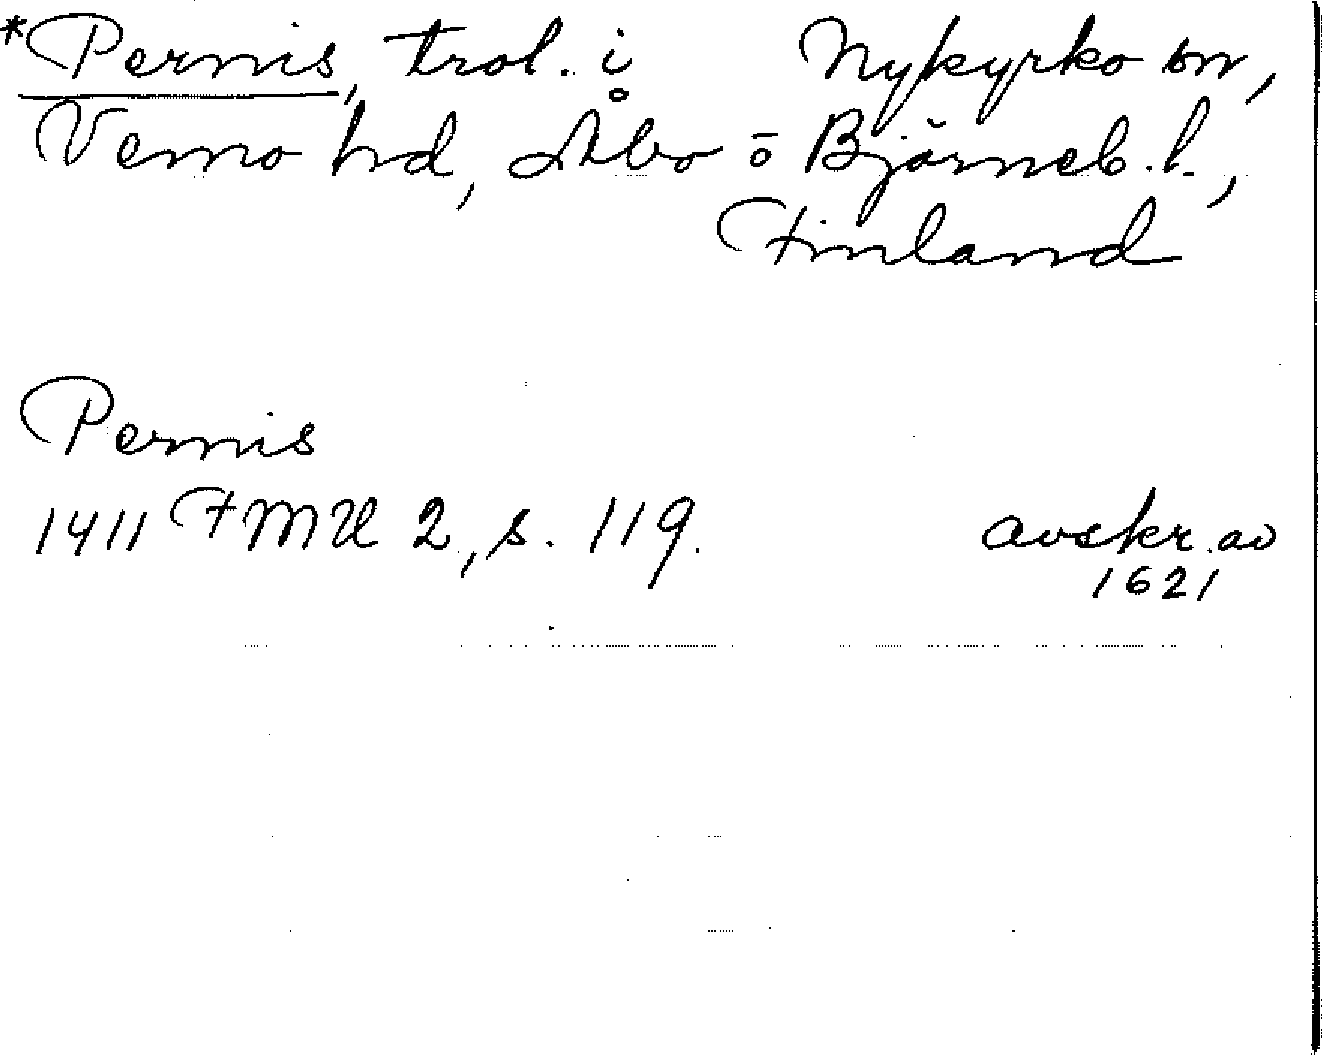 *Pernis, trol. i Nykyrko sn,
Vemo hd, Åbo o Björneb. l.,
Finland
Pernis
1411 FMU 2, s. 119. avskr. av
1621